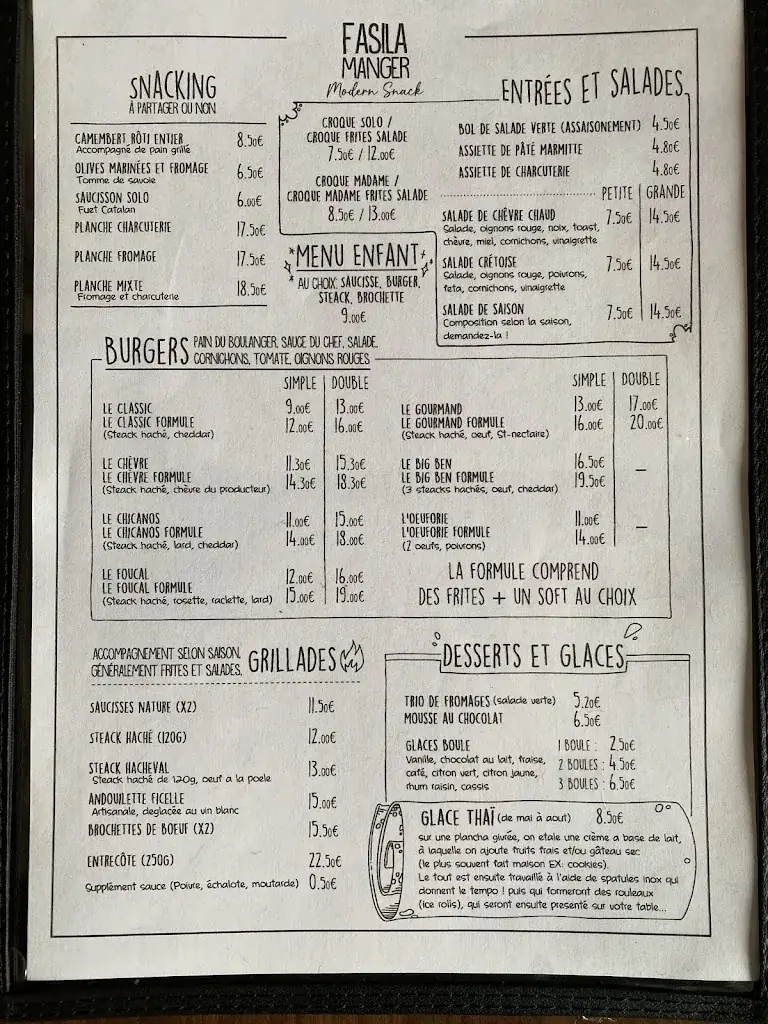 FASILA
MANGER
Modern Snack
SNACKING
À PARTAGER OU NON
CAMEMBERT RÔTI ENTIER 8.50€
Accompagné de pain grillé
OLIVES MARINÉES ET FROMAGE 6.50€
Tomme de savoie
SAUCISSON SOLO 6.00€
Fuet Catalan
PLANCHE CHARCUTERIE 17.50€
PLANCHE FROMAGE 17.50€
PLANCHE MIXTE 18.50€
Fromage et charcuterie
CROQUE SOLO /
CROQUE FRITES SALADE
7.50€ / 12.00€
CROQUE MADAME /
CROQUE MADAME FRITES SALADE
8.50€ / 13.00€
*MENU ENFANT
* AU CHOIX: SAUCISSE, BURGER,
STEACK, BROCHETTE
9.00€
ENTRÉES ET SALADES
BOL DE SALADE VERTE (ASSAISONEMENT) 4.50€
ASSIETTE DE PÂTÉ MARMITTE 4.80€
ASSIETTE DE CHARCUTERIE 4.80€
PETITE GRANDE
SALADE DE CHÈVRE CHAUD 7.50€ 14.50€
Salade, oignons rouge, noix, toast,
chèvre, miel, cornichons, vinaigrette
SALADE CRÉTOISE 7.50€ 14.50€
Salade, oignons rouge, poivrons,
feta, cornichons, vinaigrette
SALADE DE SAISON 7.50€ 14.50€
Composition selon la saison,
demandez-la !
BURGERS PAIN DU BOULANGER, SAUCE DU CHEF, SALADE,
CORNICHONS, TOMATE, OIGNONS ROUGES
SIMPLE DOUBLE
LE CLASSIC 9.00€ 13.00€
LE CLASSIC FORMULE 12.00€ 16.00€
(Steack haché, cheddar)
LE CHÈVRE 11.30€ 15.30€
LE CHÈVRE FORMULE 14.30€ 18.30€
(Steack haché, chèvre du producteur)
LE CHICANOS 11.00€ 15.00€
LE CHICANOS FORMULE 14.00€ 18.00€
(Steack haché, lard, cheddar)
LE FOUCAL 12.00€ 16.00€
LE FOUCAL FORMULE 15.00€ 19.00€
(Steack haché, rosette, raclette, lard)
SIMPLE DOUBLE
LE GOURMAND 13.00€ 17.00€
LE GOURMAND FORMULE 16.00€ 20.00€
(Steack haché, oeuf, St-nectaire)
LE BIG BEN 16.50€
LE BIG BEN FORMULE 19.50€ –
(3 steacks hachés, oeuf, cheddar)
L'OEUFORIE 11.00€
L'OEUFORIE FORMULE 14.00€ –
(2 oeufs, poivrons)
LA FORMULE COMPREND
DES FRITES + UN SOFT AU CHOIX
ACCOMPAGNEMENT SELON SAISON,
GÉNÉRALEMENT FRITES ET SALADES,
GRILLADES
SAUCISSES NATURE (X2) 11.50€
STEACK HACHÉ (120G) 12.00€
STEACK HACHEVAL 13.00€
Steack haché de 120g, oeuf a la poele
ANDOUILETTE FICELLE 15.00€
Artisanale, deglacée au vin blanc
BROCHETTES DE BOEUF (X2) 15.50€
ENTRECÔTE (250G) 22.50€
Supplément sauce (Poivre, échalote, moutarde) 0.50€
DESSERTS ET GLACES
TRIO DE FROMAGES (salade verte) 5.20€
MOUSSE AU CHOCOLAT 6.50€
GLACES BOULE 1 BOULE : 2.50€
Vanille, chocolat au lait, fraise,
café, citron vert, citron jaune, 2 BOULES : 4.50€
rhum raisin, cassis 3 BOULES : 6.50€
GLACE THAÏ (de mai à aout) 8.50€
sur une plancha givrée, on etale une crème a base de lait,
à laquelle on ajoute fruits frais et/ou gâteau sec
(le plus souvent fait maison EX: cookies).
Le tout est ensuite travaillé à l'aide de spatules inox qui
donnent le tempo ! puis qui formeront des rouleaux
(ice rolls), qui seront ensuite presenté sur votre table...